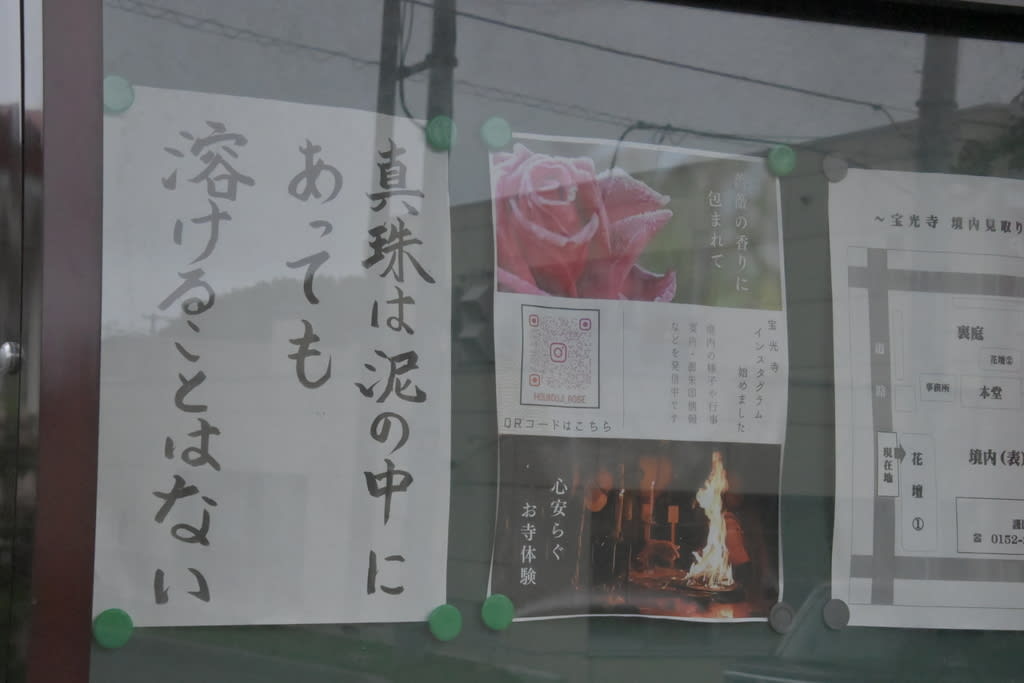 真珠は泥の中に
あっても
溶けることはない
薔薇の香りに
包まれて
宝光寺
インスタグラム
始めました
境内の様子や行事
案内・御朱印情報
などを発信中です
HOUKOUJI_ROSE
QRコードはこちら
心安らぐ
お寺体験
～宝光寺 境内見取り
道路
裏庭
花壇②
事務所
本堂
現在地
花壇①
境内(表)
☎ 0152-